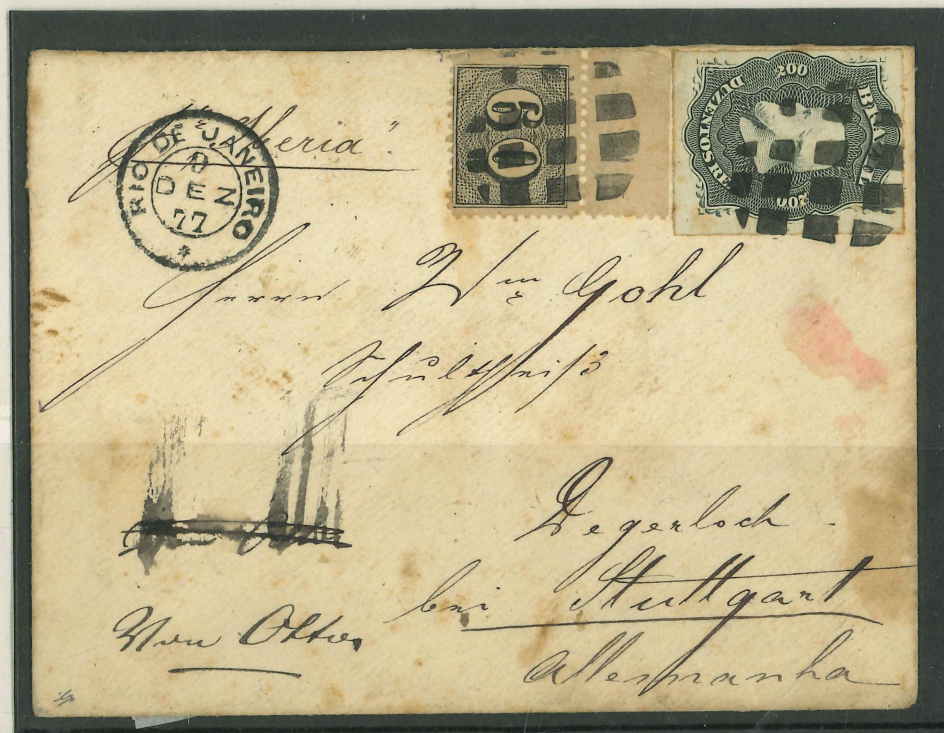 RIO DE JANEIRO
DEZ
77
60
200
BRAZIL
DUZENTOS RE
200
Herrn Wm Gohl
Schultheiß
Degerloch
bei Stuttgart
Allesmanha
Von Otto